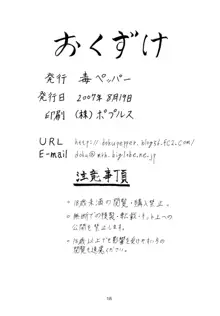 おくずけ
発行 毒ペッパー
発行日 2007年8月19日
印刷 (株)ポプルス
URL http://dokupepper.blog56.fc2.com/
E-mail doku@mrh.biglobe.ne.jp
注意事項
。18歳未満の閲覧・購入禁止。
。無断での複製・転載・ネット上への公開を禁止します。
。18歳以上でも影響を受けやすい方の閲覧も遠慮ください。